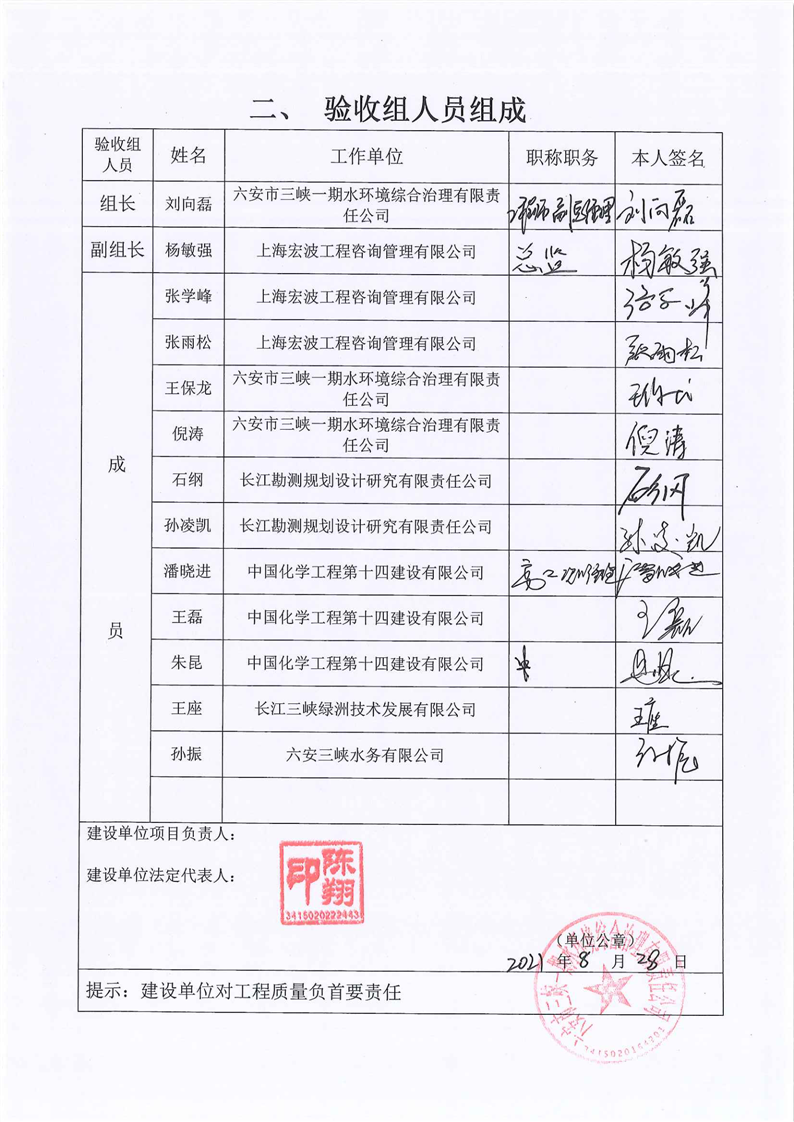 二、 验收组人员组成
验收组人员 姓名 工作单位 职称职务 本人签名
组长 刘向磊 六安市三峡一期水环境综合治理有限责任公司 刘向磊
副组长 杨敏强 上海宏波工程咨询管理有限公司 总监 杨敏强
成员
张学峰 上海宏波工程咨询管理有限公司
张雨松 上海宏波工程咨询管理有限公司 张雨松
王保龙 六安市三峡一期水环境综合治理有限责任公司
倪涛 六安市三峡一期水环境综合治理有限责任公司 倪涛
石纲 长江勘测规划设计研究有限责任公司
孙凌凯 长江勘测规划设计研究有限责任公司 孙凌凯
潘晓进 中国化学工程第十四建设有限公司
王磊 中国化学工程第十四建设有限公司 王磊
朱昆 中国化学工程第十四建设有限公司
王座 长江三峡绿洲技术发展有限公司 王座
孙振 六安三峡水务有限公司
建设单位项目负责人：
建设单位法定代表人：
陈翔印
3415020222443
（单位公章）
2021 年 8 月 28 日
提示：建设单位对工程质量负首要责任